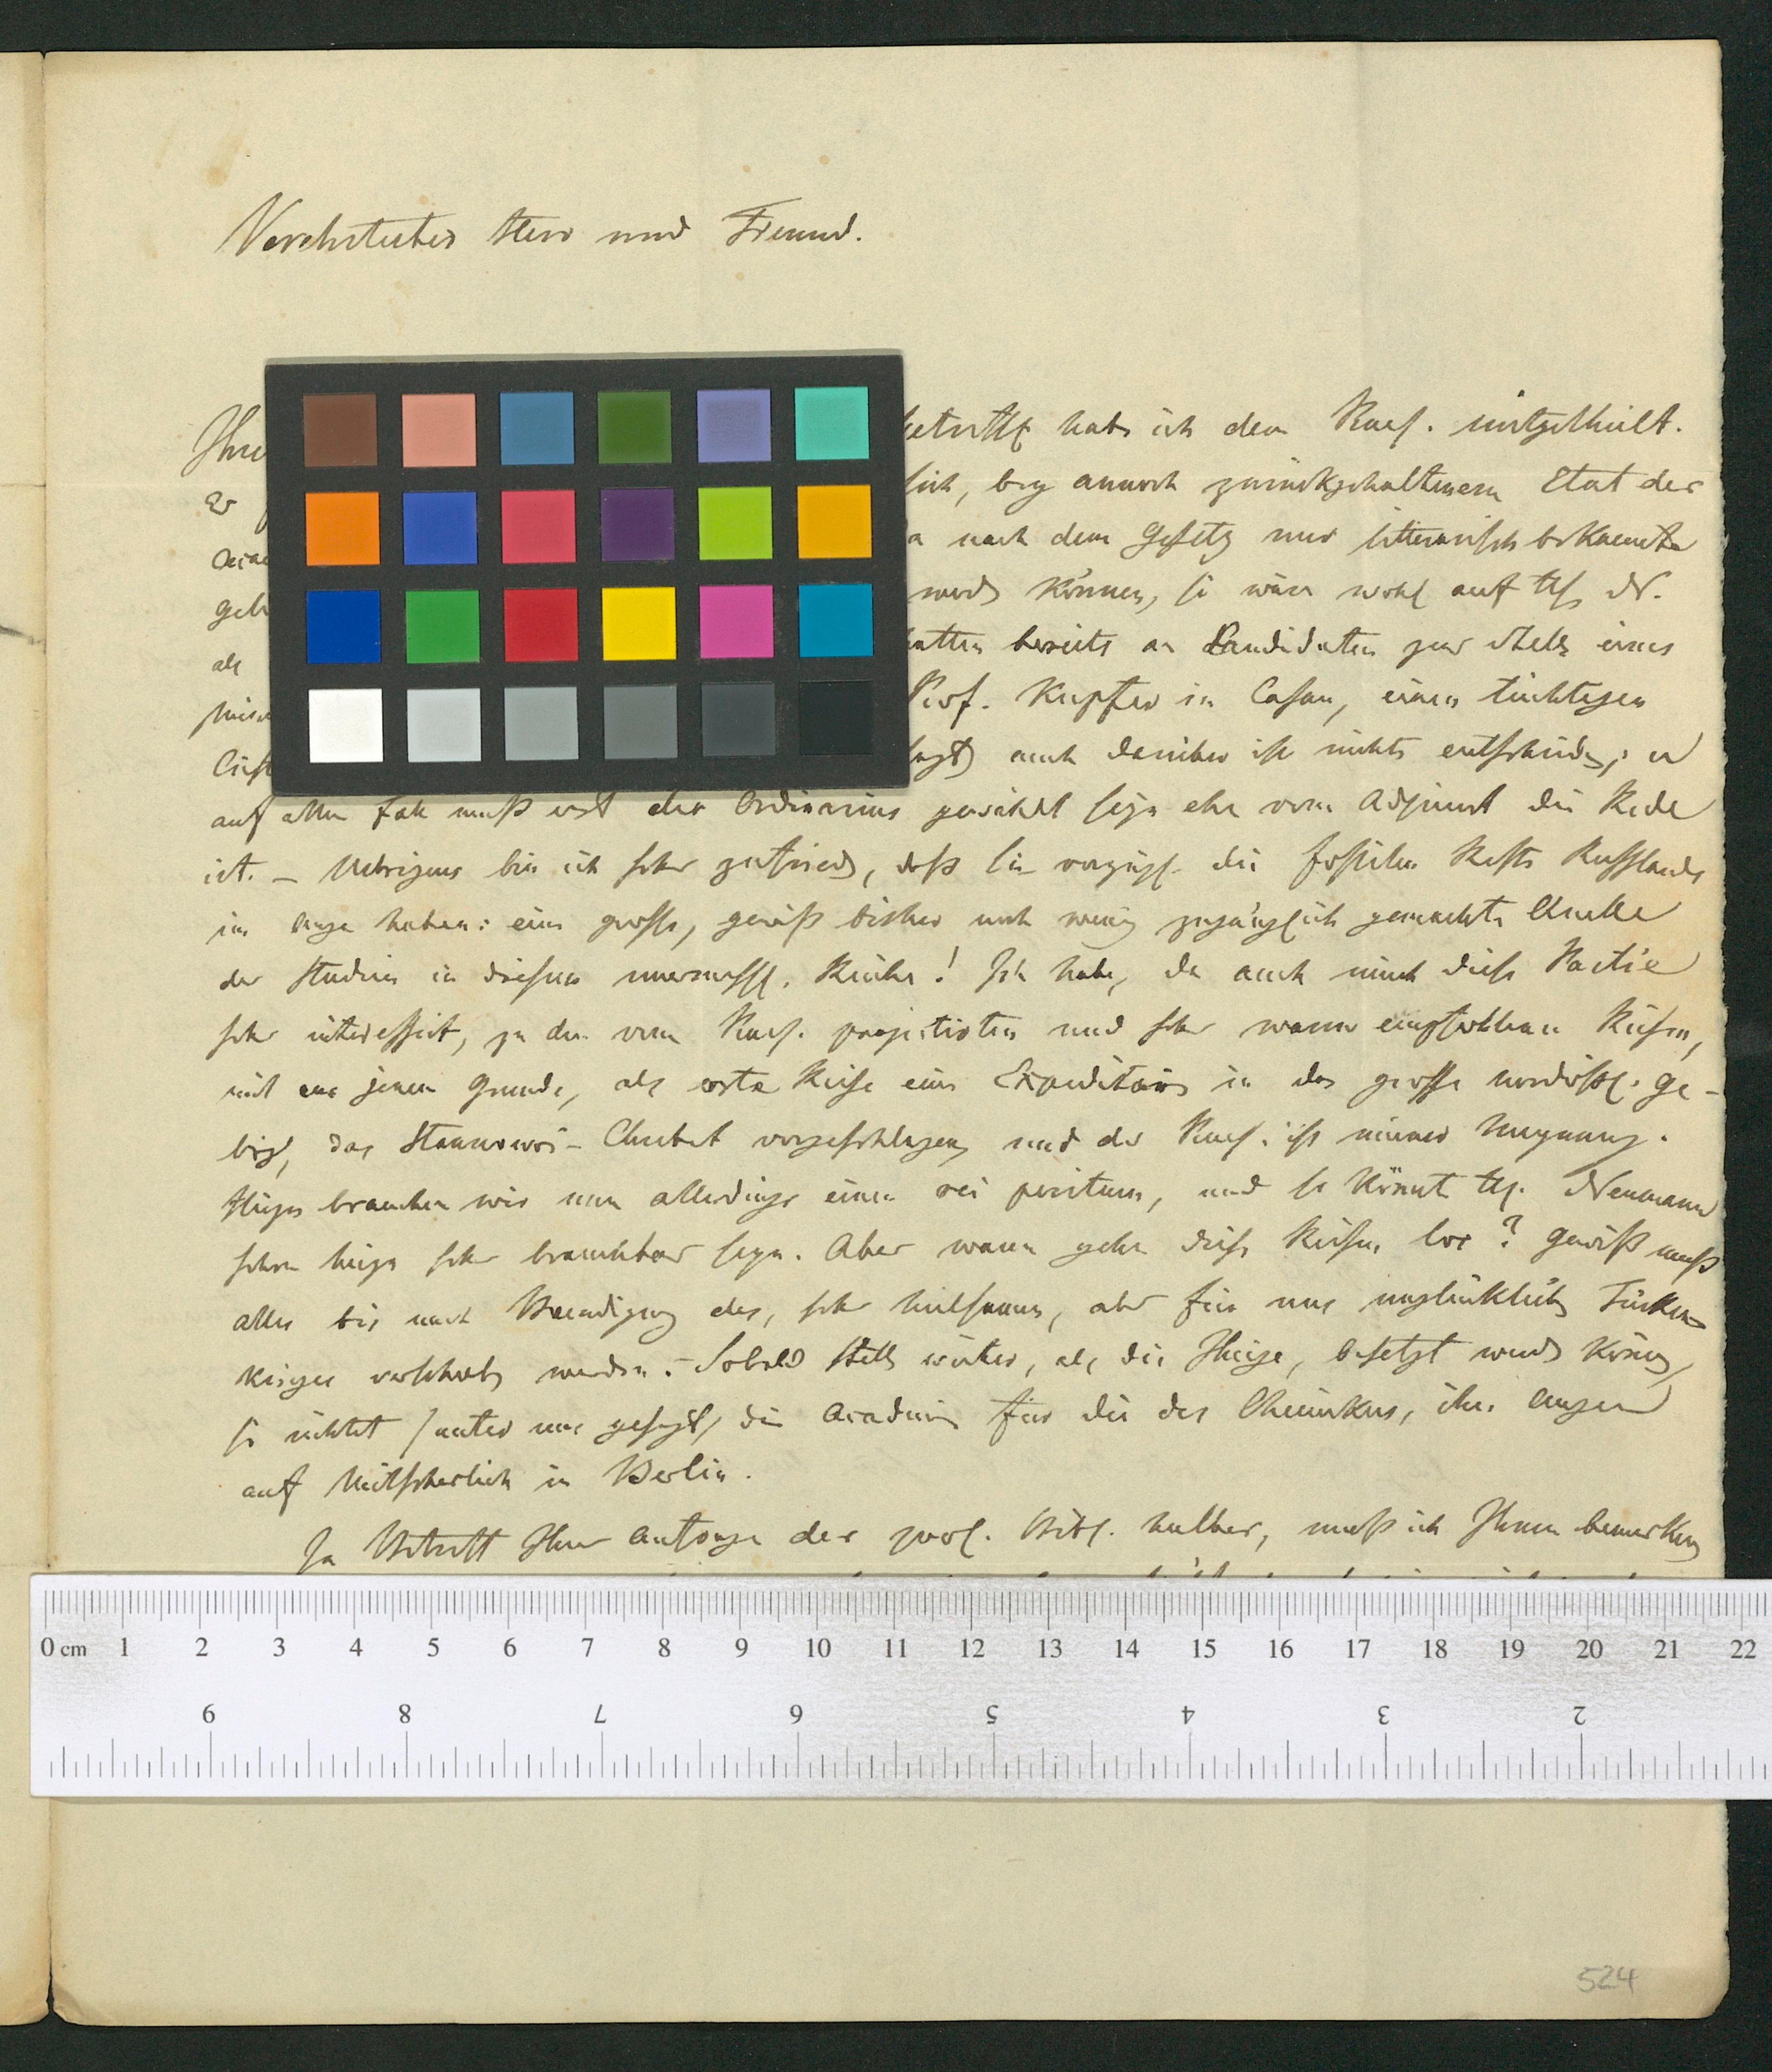 Verehrtester Herr und Freund.
Ihre betreffd habe ich dem Praes. mitgetheilt.
Er sich, bey annoch zurückgehaltenem Etat der
Acad nach dem Gesetz nur litterarisch bekannte
geh werdn können, so wäre wohl auf H N.
als hatten bereits an Candidaten zur Stelle eines
Miner Prof. Kupffer in Casan, einen tüchtigen
auch darüber ist nichts entschieden; u
auf allen Fall muß erst der Ordinarius gewählt seyn ehe vom Adjunct die Rede
ist. – Uebrigens bin ich sehr zufrieden, daß Sie vorzügl. die fossilen Reste Russlands
im Auge haben: eine grosse, gewiß bisher noch wenig zugänglich gemachte Quelle
der Studien in diesem unermessl. Reiche! Ich habe, da auch mich diese Partie
sehr interessirt, zu den vom Praes. projectirten und sehr warm empfohlnen Reisen,
mit aus jenem Grunde, als erste Reise eine Expedition in das grosse nordöstl. Ge-
birg, das Stannowoi-Chrebet vorgeschlagen und der Praes. ist meiner Meynung.
Hiezu brauchen wir nun allerdings einen rei peritum, und so könnt H. Neumann
schon hiezu sehr brauchbar seyn. Aber wann gehn diese Reisen los? Gewiß muß
alles bis nach Beendigung des, sehr heilsamen, aber für uns unglücklichen Türken-
krieges verschoben werden. – Sobald Stelln weiter, als die Ihrige, besetzt werdn können,
so richtet /unter uns gesagt/ die Academie für die des Chemikus, ihre Augen
auf Mitscherlich in Berlin.
In Betreff Ihrer Anfrage der zool. Bibl. halber, muß ich Ihnen bemerken
0 cm 1 2 3 4 5 6 7 8 9 10 11 12 13 14 15 16 17 18 19 20 21 22
9 8 7 6 5 4 3 2
524